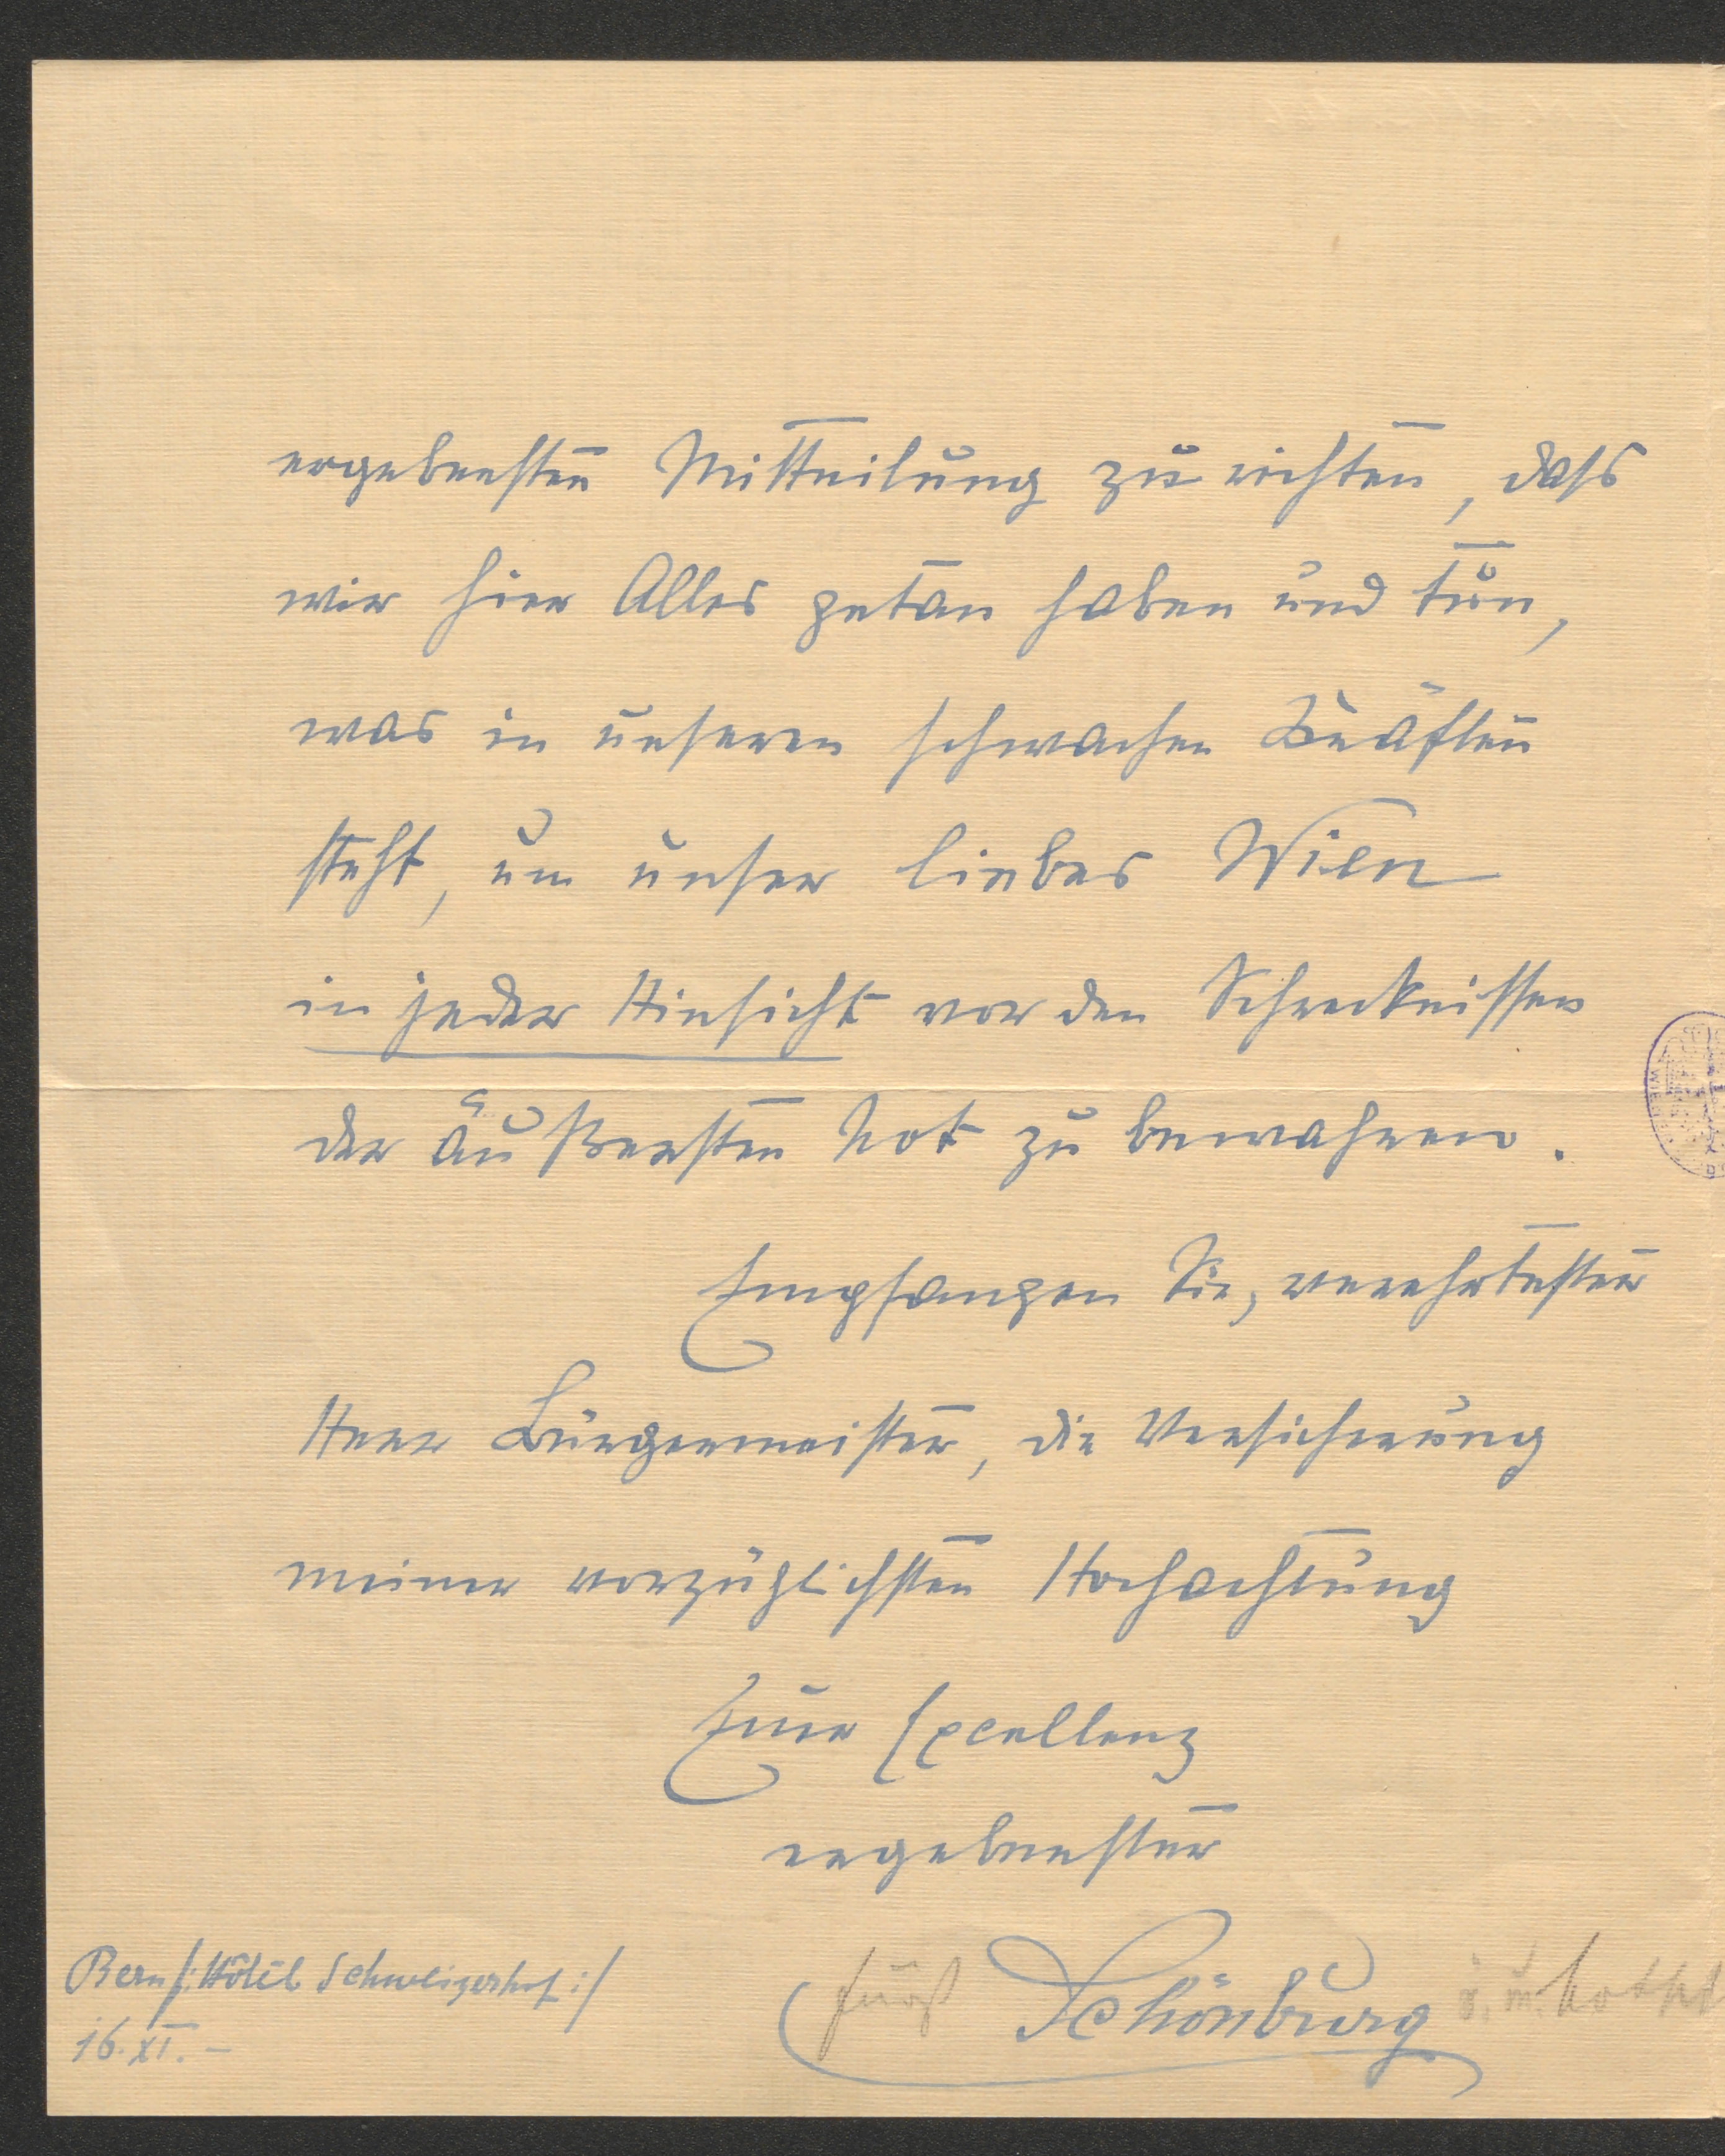 ergebensten Mitteilung zu richten, dass
wir hier Alles getan haben und tun,
was in unseren schwachen Kräften
steht, um unser liebes Wien
in jeder Hinsicht vor den Schrecknissen
der äußersten Not zu bewahren.
Empfangen Sie, verehrtester
Herr Bürgermeister, die Versicherung
meiner vorzüglichsten Hochachtung
Eurer Excellenz
ergebenster
Fürst Schönburg
Bern /: Hôtel Schweizerhof :/
16. XI. –